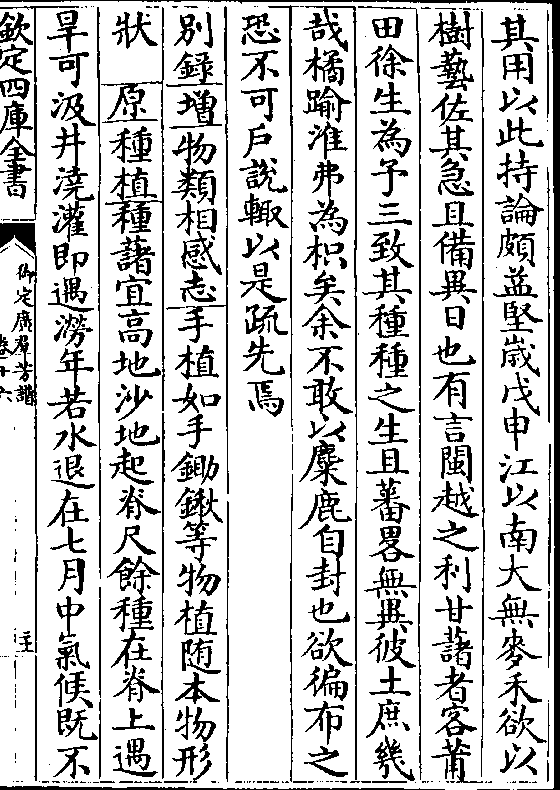 其用以此持論頗益堅歲戊申江以南大無麥禾欲以
樹藝佐其急且備異日也有言閩越之利甘藷者客莆
田徐生為予三致其種種之生且蕃畧無異彼土庶幾
哉橘踰淮弗為枳矣余不敢以麋鹿自封也欲徧布之
恐不可戶說輙以是疏先焉
別録 增 物類相感志 手植如手鋤鍬等物植随本物形
狀 原 種植 種藷宜高地沙地起脊尺餘種在脊上遇
旱可汲井澆灌即遇澇年若水退在七月中氣候既不
欽定四庫全書
御定廣羣芳譜
卷十六